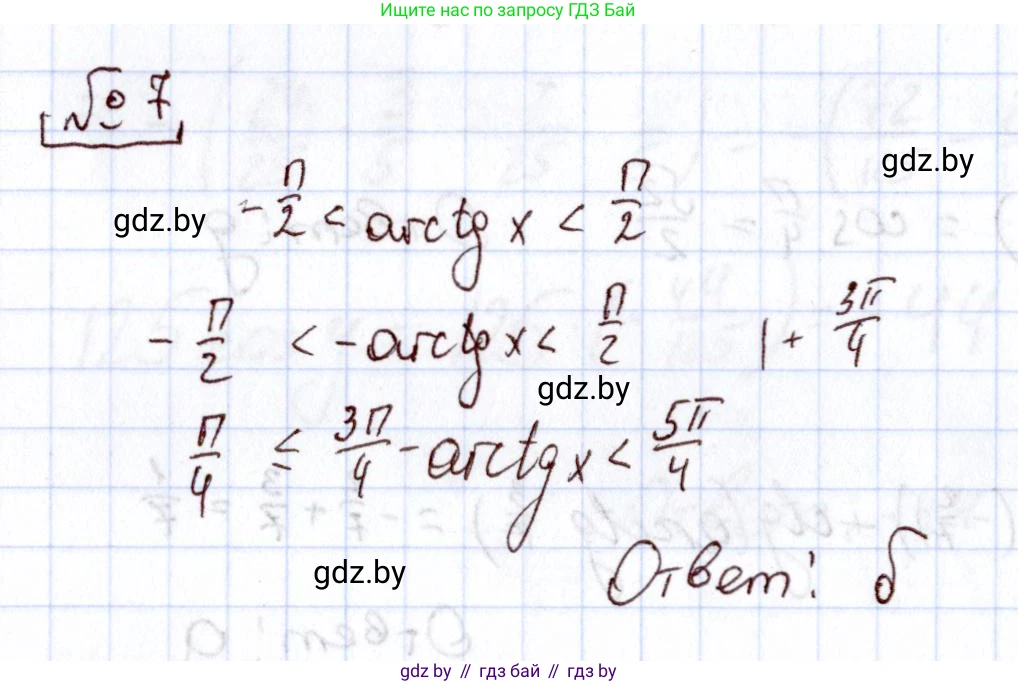 Ищите нас по запросу ГДЗ Бай
№ 7
gdz.by
gdz.by
-П/2 < arctg x < П/2
-П/2 < -arctg x < П/2 | + 3π/4
gdz.by
П/4 ≤ 3П/4 - arctg x < 5π/4
gdz.by
Ответ: б
gdz.by // гдз бай // gdz.by